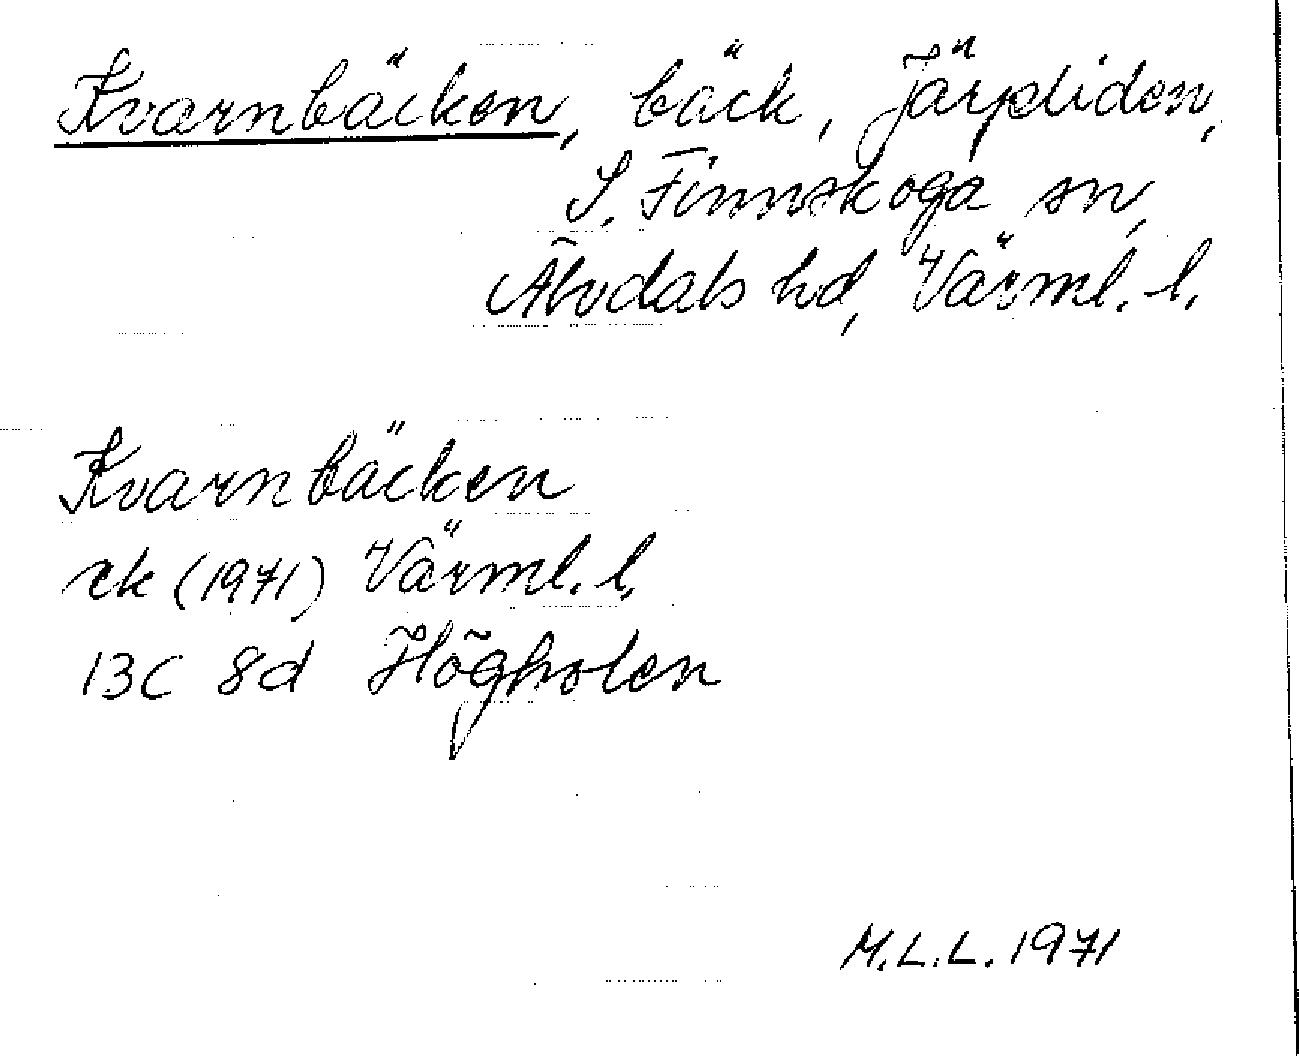 Kvarnbäcken, bäck, Järpliden,
S. Finnskoga sn,
Älvdals hd, Värml. l.
Kvarnbäcken
ek (1971) Värml. l.
13C 8d Högholen
M.L.L. 1971